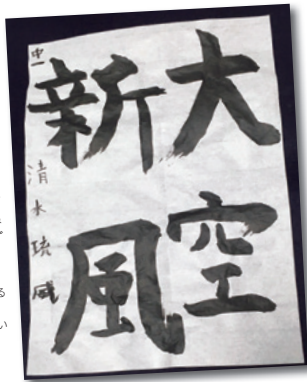 大空
新風
中一 清水琉威
る
い